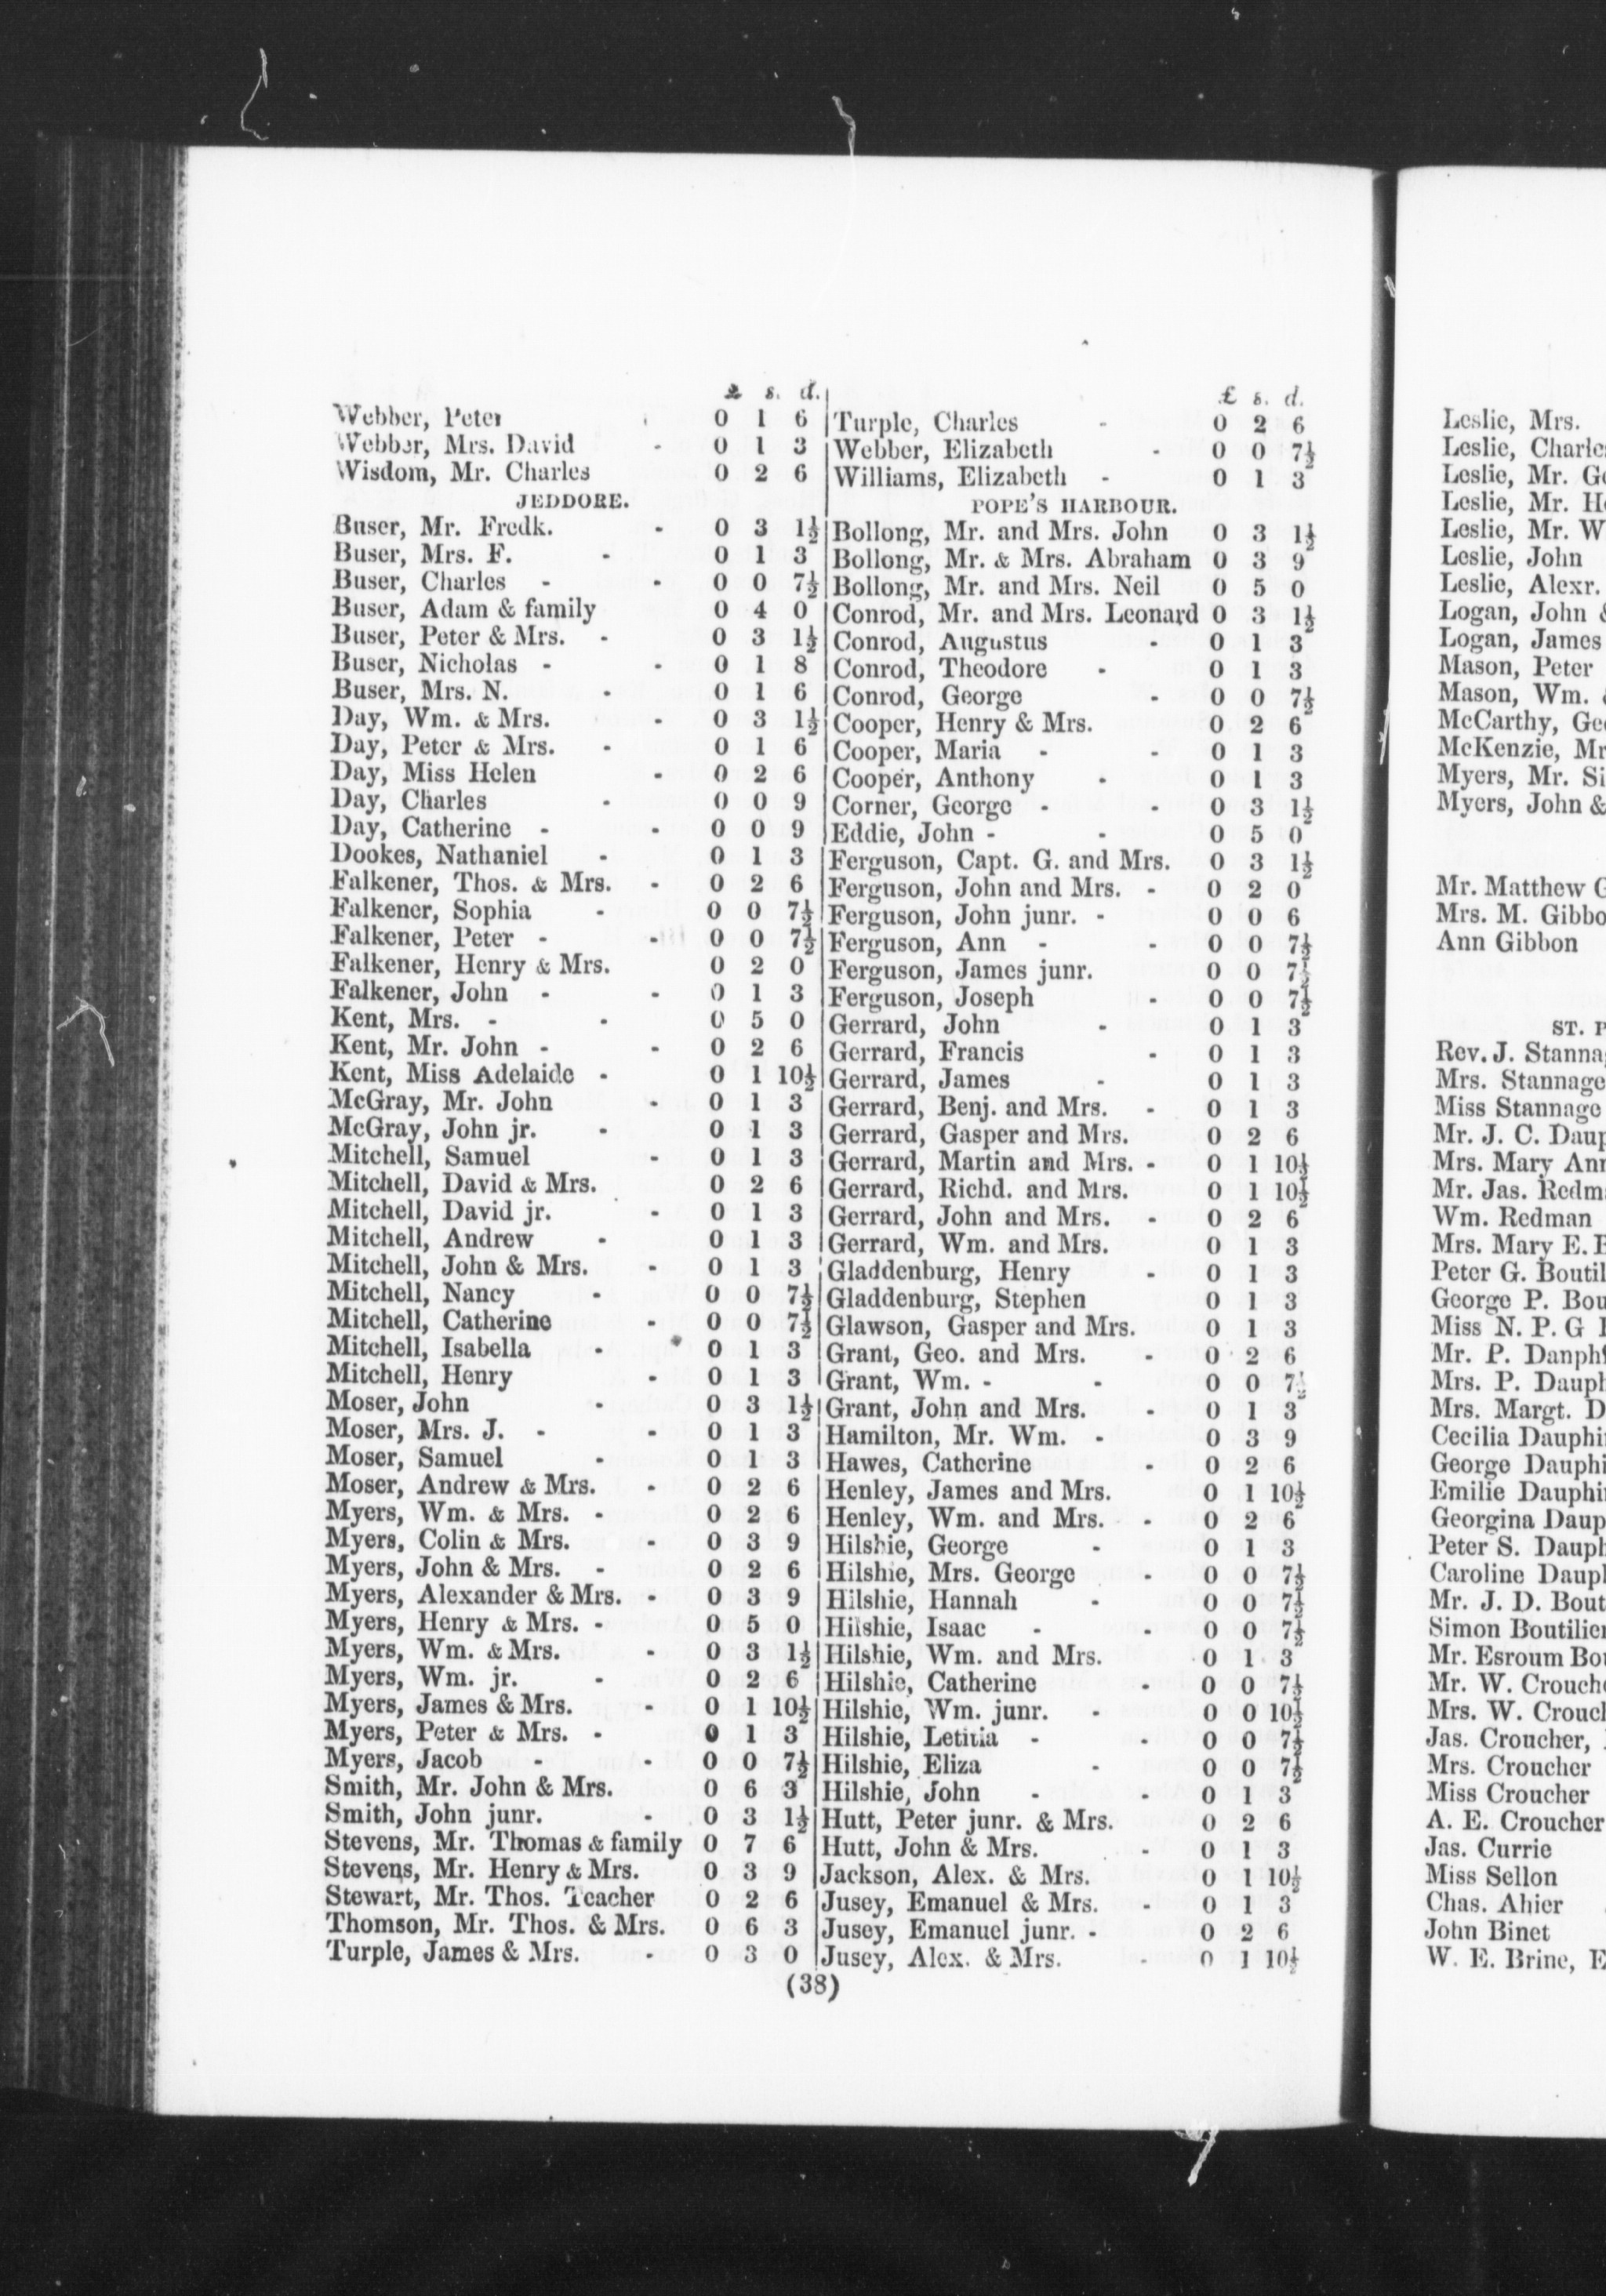 £ s. d.
Webber, Peter 0 1 6
Webber, Mrs. David - 0 1 3
Wisdom, Mr. Charles 0 2 6
JEDDORE.
Buser, Mr. Fredk. - 0 3 1½
Buser, Mrs. F. - 0 1 3
Buser, Charles - - 0 0 7½
Buser, Adam & family 0 4 0
Buser, Peter & Mrs. - 0 3 1½
Buser, Nicholas - - 0 1 8
Buser, Mrs. N. - 0 1 6
Day, Wm. & Mrs. - 0 3 1½
Day, Peter & Mrs. - 0 1 6
Day, Miss Helen - 0 2 6
Day, Charles - 0 0 9
Day, Catherine - - 0 0 9
Dookes, Nathaniel - 0 1 3
Falkener, Thos. & Mrs. - 0 2 6
Falkener, Sophia - 0 0 7½
Falkener, Peter - - 0 0 7½
Falkener, Henry & Mrs. 0 2 0
Falkener, John - - 0 1 3
Kent, Mrs. - - 0 5 0
Kent, Mr. John - - 0 2 6
Kent, Miss Adelaide - 0 1 10½
McGray, Mr. John - 0 1 3
McGray, John jr. - 0 1 3
Mitchell, Samuel - 0 1 3
Mitchell, David & Mrs. 0 2 6
Mitchell, David jr. - 0 1 3
Mitchell, Andrew - 0 1 3
Mitchell, John & Mrs. - 0 1 3
Mitchell, Nancy - 0 0 7½
Mitchell, Catherine - 0 0 7½
Mitchell, Isabella - 0 1 3
Mitchell, Henry - 0 1 3
Moser, John - 0 3 1½
Moser, Mrs. J. - - 0 1 3
Moser, Samuel - 0 1 3
Moser, Andrew & Mrs. - 0 2 6
Myers, Wm. & Mrs. - 0 2 6
Myers, Colin & Mrs. - 0 3 9
Myers, John & Mrs. - 0 2 6
Myers, Alexander & Mrs. - 0 3 9
Myers, Henry & Mrs. - 0 5 0
Myers, Wm. & Mrs. - 0 3 1½
Myers, Wm. jr. - 0 2 6
Myers, James & Mrs. - 0 1 10½
Myers, Peter & Mrs. - 0 1 3
Myers, Jacob - - 0 0 7½
Smith, Mr. John & Mrs. 0 6 3
Smith, John junr. - 0 3 1½
Stevens, Mr. Thomas & family 0 7 6
Stevens, Mr. Henry & Mrs. 0 3 9
Stewart, Mr. Thos. Teacher 0 2 6
Thomson, Mr. Thos. & Mrs. 0 6 3
Turple, James & Mrs. - 0 3 0
£ s. d.
Turple, Charles - 0 2 6
Webber, Elizabeth - 0 0 7½
Williams, Elizabeth - 0 1 3
POPE'S HARBOUR.
Bollong, Mr. and Mrs. John 0 3 1½
Bollong, Mr. & Mrs. Abraham 0 3 9
Bollong, Mr. and Mrs. Neil 0 5 0
Conrod, Mr. and Mrs. Leonard 0 3 1½
Conrod, Augustus - 0 1 3
Conrod, Theodore - 0 1 3
Conrod, George - 0 0 7½
Cooper, Henry & Mrs. 0 2 6
Cooper, Maria - - 0 1 3
Cooper, Anthony - 0 1 3
Corner, George - - 0 3 1½
Eddie, John - - 0 5 0
Ferguson, Capt. G. and Mrs. 0 3 1½
Ferguson, John and Mrs. - 0 2 0
Ferguson, John junr. - 0 0 6
Ferguson, Ann - - 0 0 7½
Ferguson, James junr. 0 0 7½
Ferguson, Joseph - 0 0 7½
Gerrard, John - 0 1 3
Gerrard, Francis - 0 1 3
Gerrard, James - 0 1 3
Gerrard, Benj. and Mrs. - 0 1 3
Gerrard, Gasper and Mrs. 0 2 6
Gerrard, Martin and Mrs. - 0 1 10½
Gerrard, Richd. and Mrs. 0 1 10½
Gerrard, John and Mrs. - 0 2 6
Gerrard, Wm. and Mrs. 0 1 3
Gladdenburg, Henry - 0 1 3
Gladdenburg, Stephen 0 1 3
Glawson, Gasper and Mrs. 0 1 3
Grant, Geo. and Mrs. - 0 2 6
Grant, Wm. - - 0 0 7½
Grant, John and Mrs. - 0 1 3
Hamilton, Mr. Wm. - 0 3 9
Hawes, Catherine - 0 2 6
Henley, James and Mrs. 0 1 10½
Henley, Wm. and Mrs. - 0 2 6
Hilshie, George - 0 1 3
Hilshie, Mrs. George - 0 0 7½
Hilshie, Hannah - 0 0 7½
Hilshie, Isaac - - 0 0 7½
Hilshie, Wm. and Mrs. 0 1 3
Hilshie, Catherine - 0 0 7½
Hilshie, Wm. junr. - 0 0 10½
Hilshie, Letitia - - 0 0 7½
Hilshie, Eliza - 0 0 7½
Hilshie, John - - 0 1 3
Hutt, Peter junr. & Mrs. 0 2 6
Hutt, John & Mrs. - 0 1 3
Jackson, Alex. & Mrs. 0 1 10½
Jusey, Emanuel & Mrs. - 0 1 3
Jusey, Emanuel junr. - 0 2 6
Jusey, Alex. & Mrs. - 0 1 10½
(38)
Leslie, Mrs.
Leslie, Charle
Leslie, Mr. G
Leslie, Mr. H
Leslie, Mr. W
Leslie, John
Leslie, Alexr.
Logan, John &
Logan, James
Mason, Peter
Mason, Wm.
McCarthy, Ge
McKenzie, Mr
Myers, Mr. Si
Myers, John &
Mr. Matthew G
Mrs. M. Gibbo
Ann Gibbon
ST. P
Rev. J. Stanna
Mrs. Stannage
Miss Stannage
Mr. J. C. Daup
Mrs. Mary Ann
Mr. Jas. Redm
Wm. Redman
Mrs. Mary E. B
Peter G. Boutil
George P. Bou
Miss N. P. G
Mr. P. Danph
Mrs. P. Dauph
Mrs. Margt. D
Cecilia Dauphi
George Dauphi
Emilie Dauphi
Georgina Daup
Peter S. Dauph
Caroline Daup
Mr. J. D. Bout
Simon Boutilier
Mr. Esroum Bo
Mr. W. Crouch
Mrs. W. Crouc
Jas. Croucher,
Mrs. Croucher
Miss Croucher
A. E. Croucher
Jas. Currie
Miss Sellon
Chas. Ahier
John Binet
W. E. Brine, E